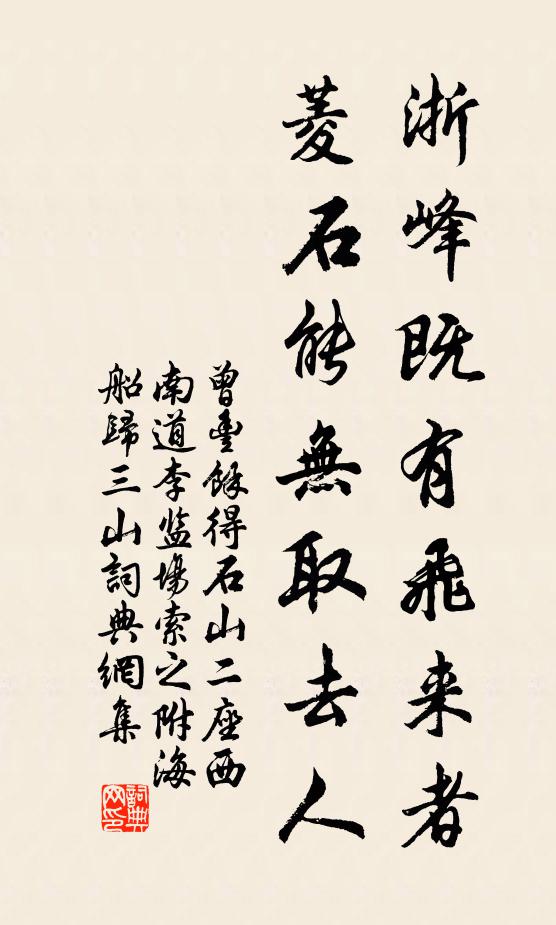 浙峰既有飛来者
菱石能無取去人
曾豊餘得石山二座西
南道李监場索之附海
船歸三山詞典網集
詞典
网印